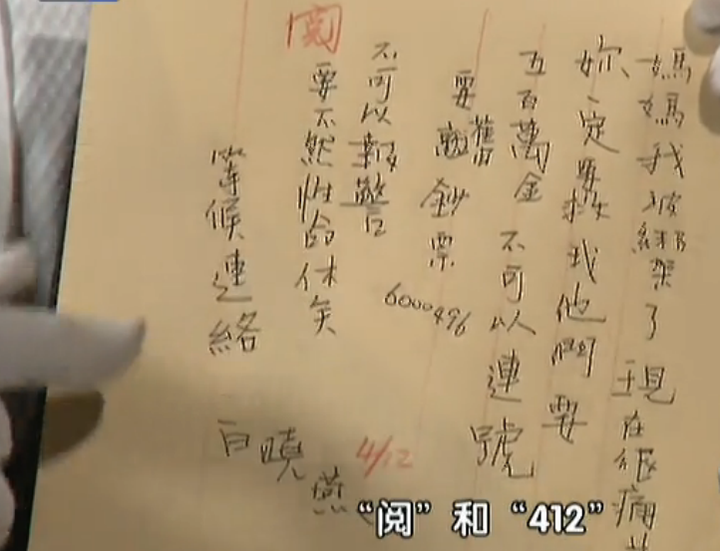 媽媽我被綁架了現在很痛苦
妳一定要救我他們要
五百萬金 不可以連號
要舊鈔票
6000496
不可以報警
要不然性命休矣
閱
等候連絡
白曉燕
4/12
“阅”和“412”